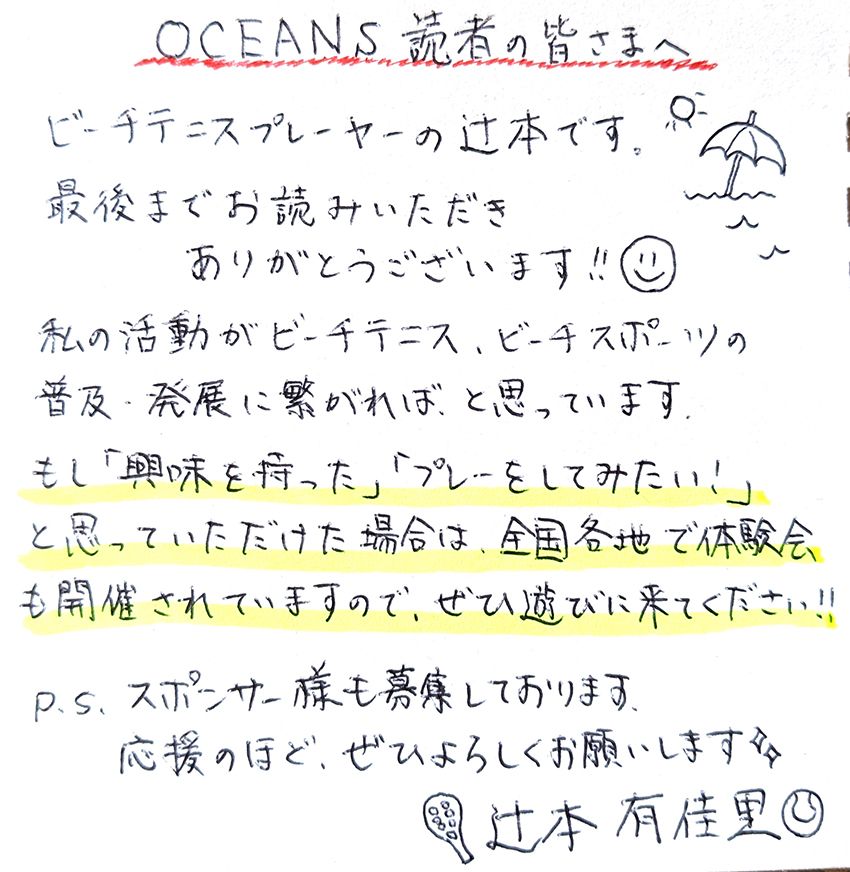 OCEANS 読者の皆さまへ
ビーチテニスプレーヤーの辻本です。
最後までお読みいただき
ありがとうございます!!
私の活動がビーチテニス、ビーチスポーツの
普及・発展に繋がれば、と思っています。
もし「興味を持った」「プレーをしてみたい!」
と思っていただけた場合は、全国各地で体験会
も開催されていますので、ぜひ遊びに来てください!!
P.S. スポンサー様も募集しております。
応援のほど、ぜひよろしくお願いします
辻本 有佳里